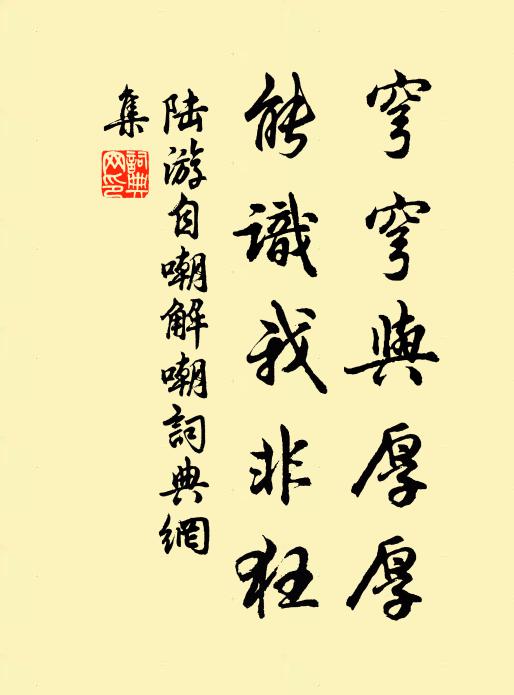 穹穹與厚厚
能識我非狂
陆游自嘲解嘲詞典網
集
詞典
网印